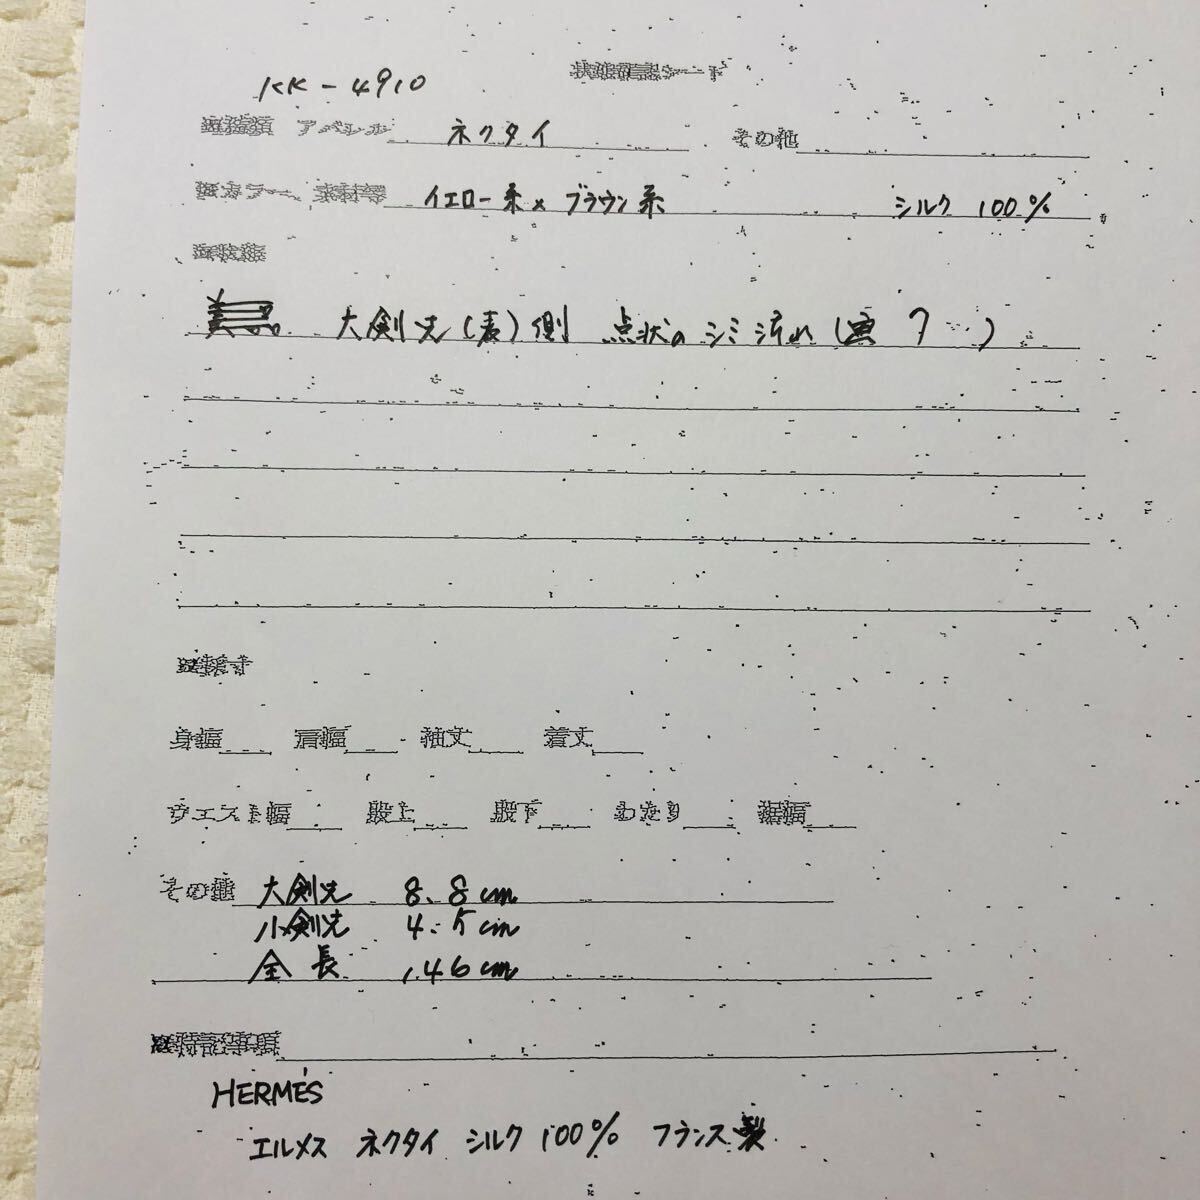 KK-4910
状態確認シート
アパレル ネクタイ その他
カラー 素材等 イエロー系×ブラウン系 シルク 100%
大剣先(表)側 点状のシミ汚れ(画 7 )
身幅 肩幅 袖丈 着丈
ウエスト幅 股上 股下 わたり 裾幅
その他 大剣先 8.8cm
小剣先 4.5cm
全長 146cm
特記事項
HERMÈS
エルメス ネクタイ シルク 100% フランス製